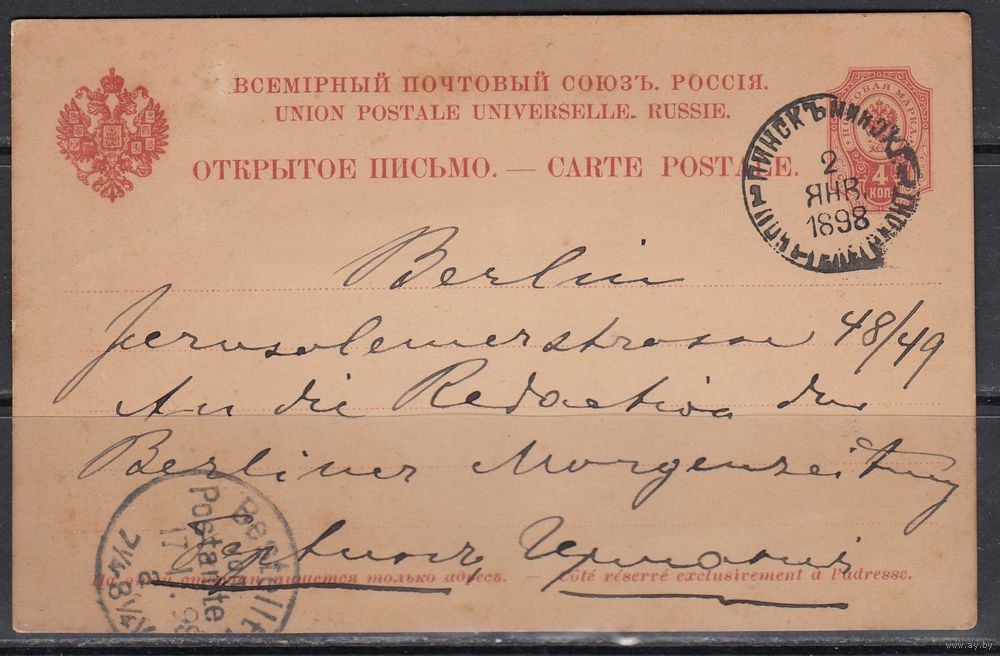 ВСЕМІРНЫЙ ПОЧТОВЫЙ СОЮЗЪ. РОССІЯ.
UNION POSTALE UNIVERSELLE. RUSSIE.
ОТКРЫТОЕ ПИСЬМО. — CARTE POSTALE.
ПОЧТОВАЯ МАРКА
4
КОП.
ПИНСКЪ МИНСК.
2
ЯНВ.
1898
Berlin
Jerusalemerstrasse 48/49
An die Redaction der
Berliner Morgenzeitung
Берлинъ, Германія
На этой сторонѣ пишется только адресъ. — Côté réservé exclusivement à l'adresse.
Bestellt
vom
Postamte
17
98
7¼-8¼V
www.ay.by